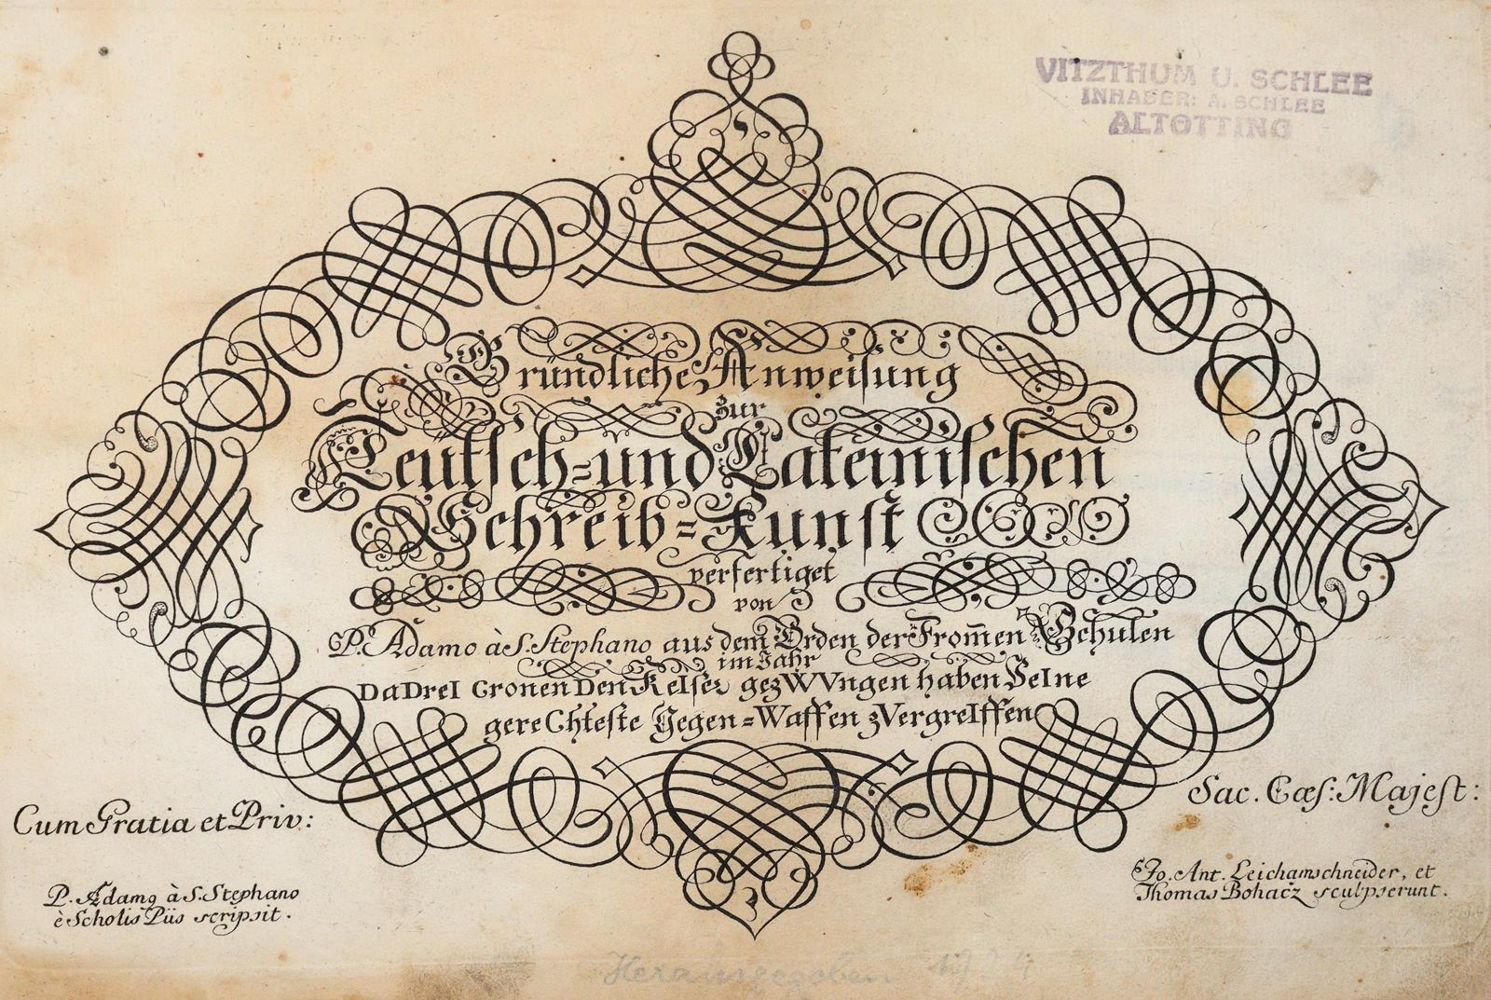 VITZTHUM U. SCHLEE
INHABER: A. SCHLEE
ALTÖTTING
Gründliche Anweisung
zur
Teütsch=und Lateinischen
Schreib=Kunst
verfertiget
von
P. Adamo à S. Stephano aus dem Orden der From̄en Schulen
im Jahr
DaDreI CronenDen KeIser gezWVngen haben SeIne
gereChteste Gegen=Waffen zVergreIffen
Cum Gratia et Priv:
Sac. Cæs: Majest:
P. Adamo à S. Stephano
è Scholis Piis scripsit.
Jo. Ant. Leichamschneider, et
Thomas Bohacz sculpserunt.
Herausgegeben